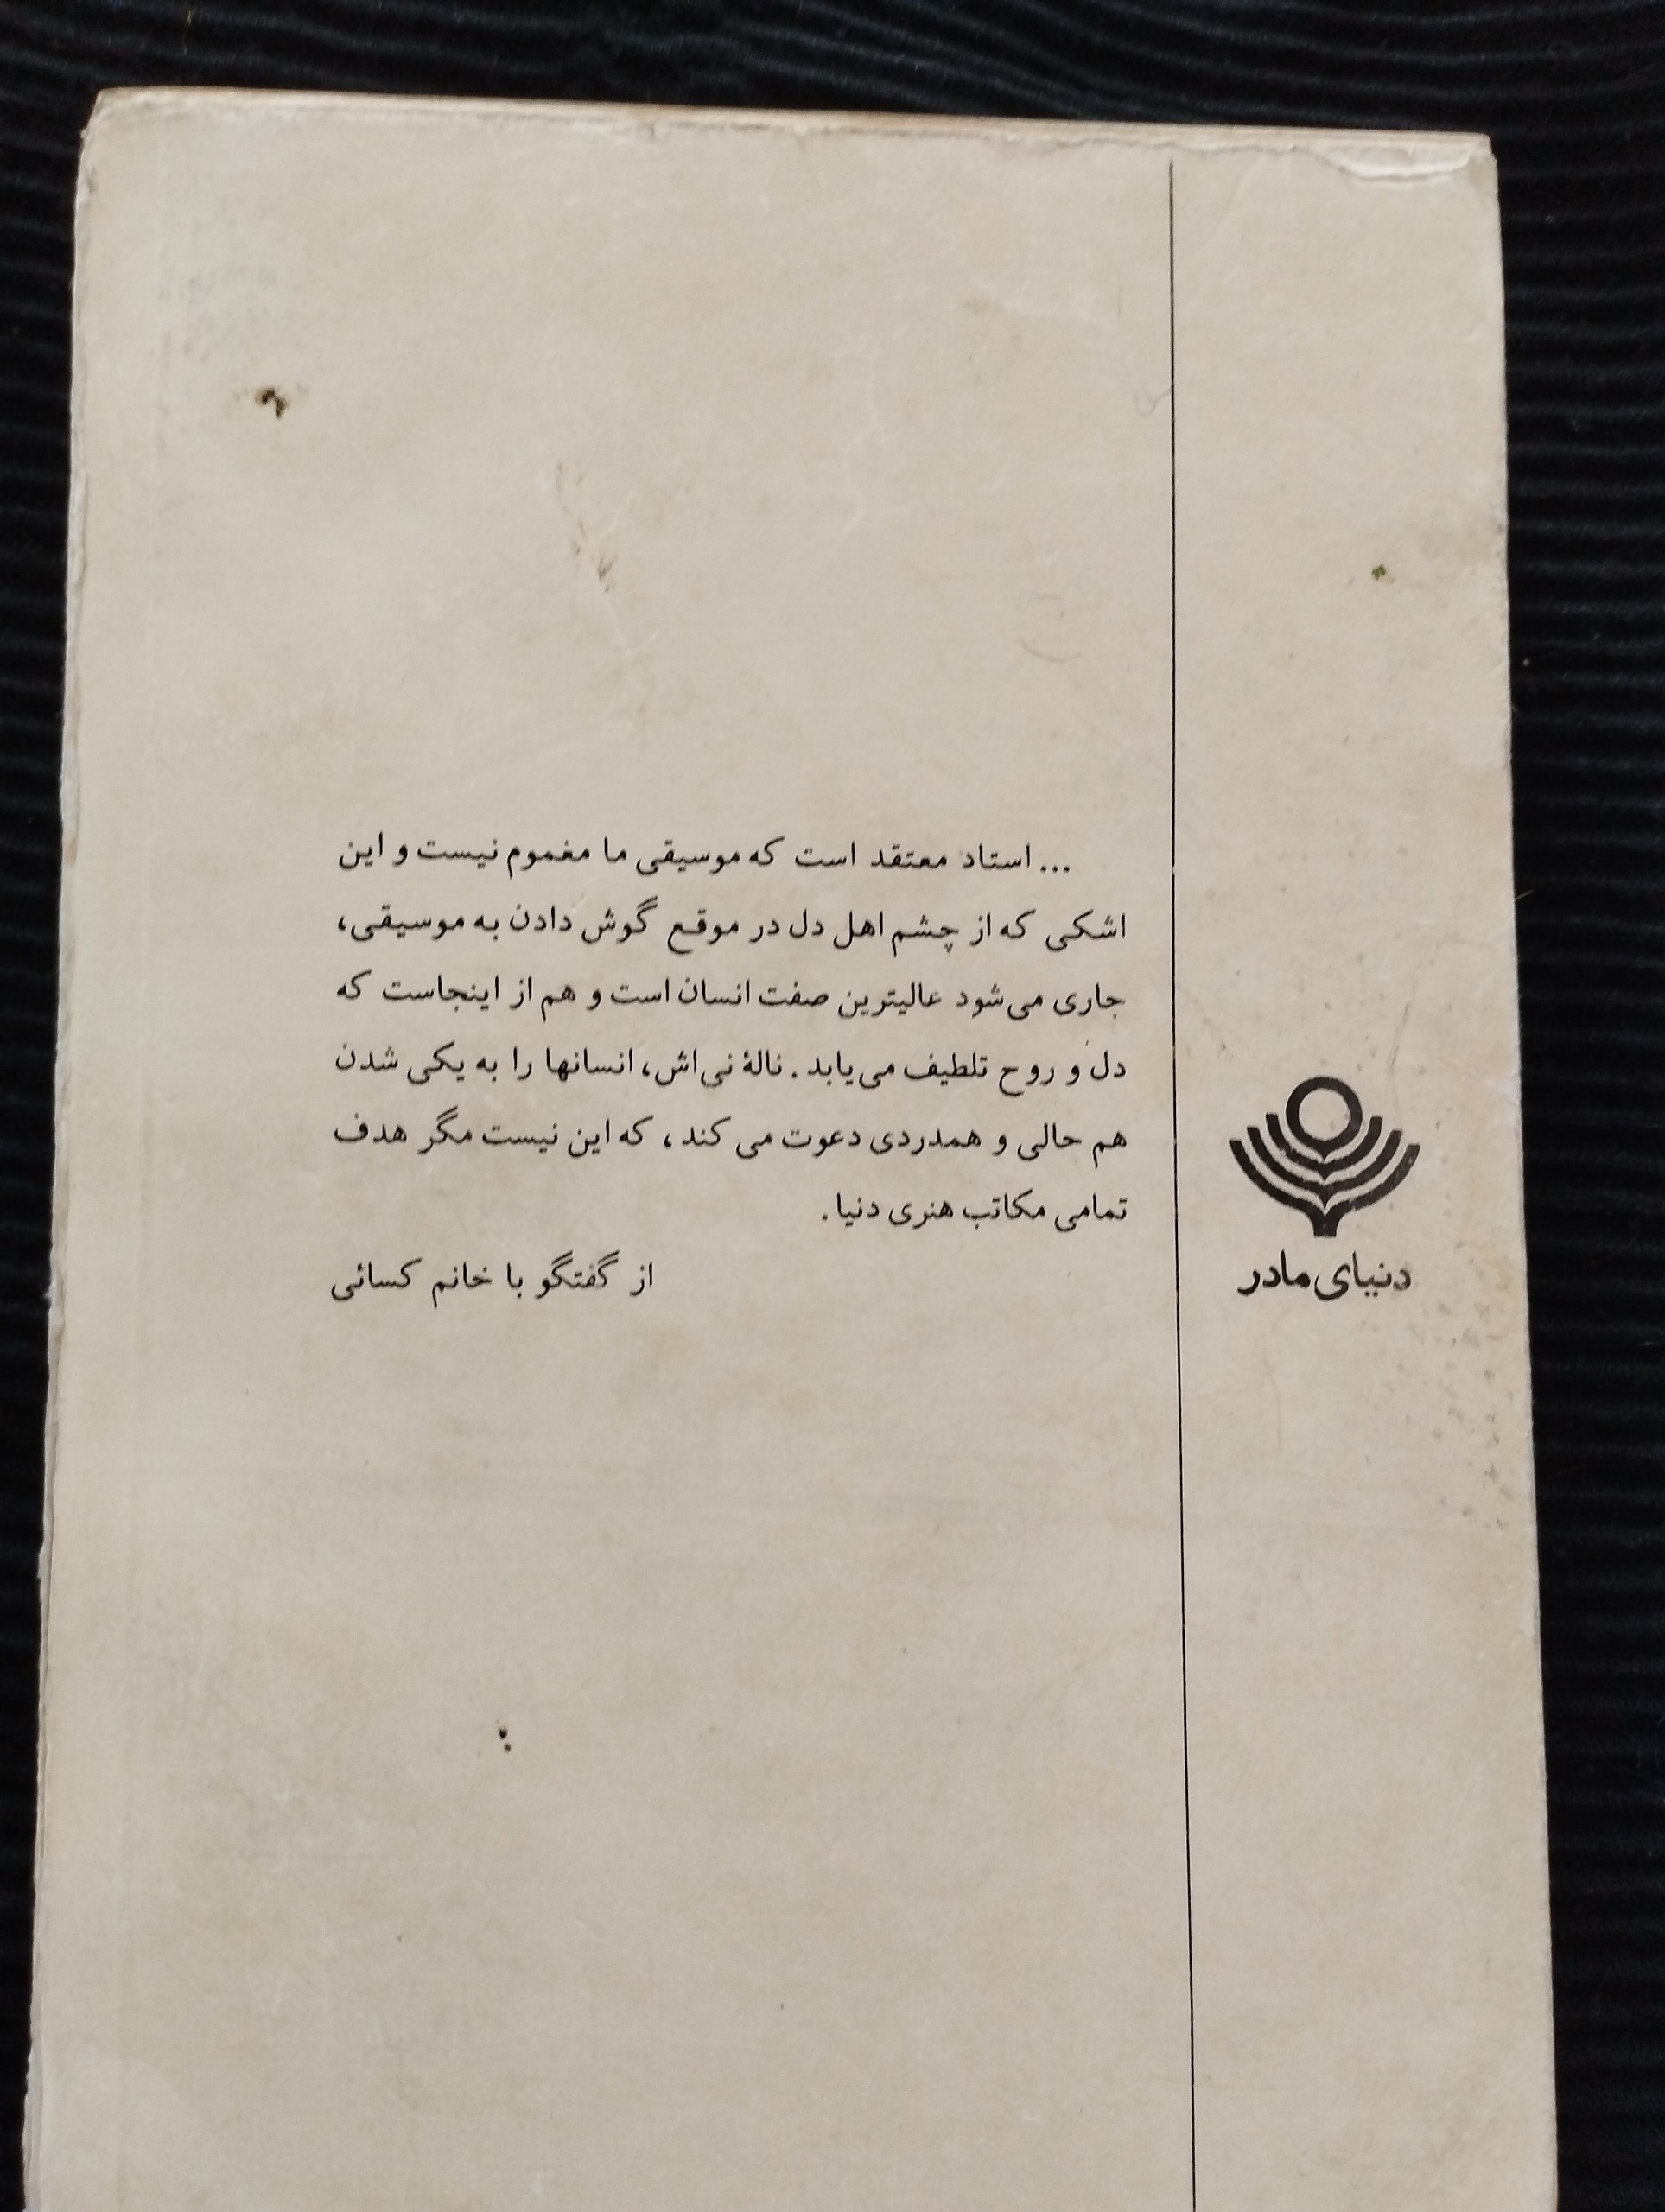 ... استاد معتقد است که موسیقی ما مغموم نیست و این
اشکی که از چشم اهل دل در موقع گوش دادن به موسیقی،
جاری می‌شود عالیترین صفت انسان است و هم از اینجاست که
دل و روح تلطیف می‌یابد. نالهٔ نی‌اش، انسانها را به یکی شدن
هم حالی و همدردی دعوت می کند، که این نیست مگر هدف
تمامی مکاتب هنری دنیا.
از گفتگو با خانم کسائی
دنیای مادر